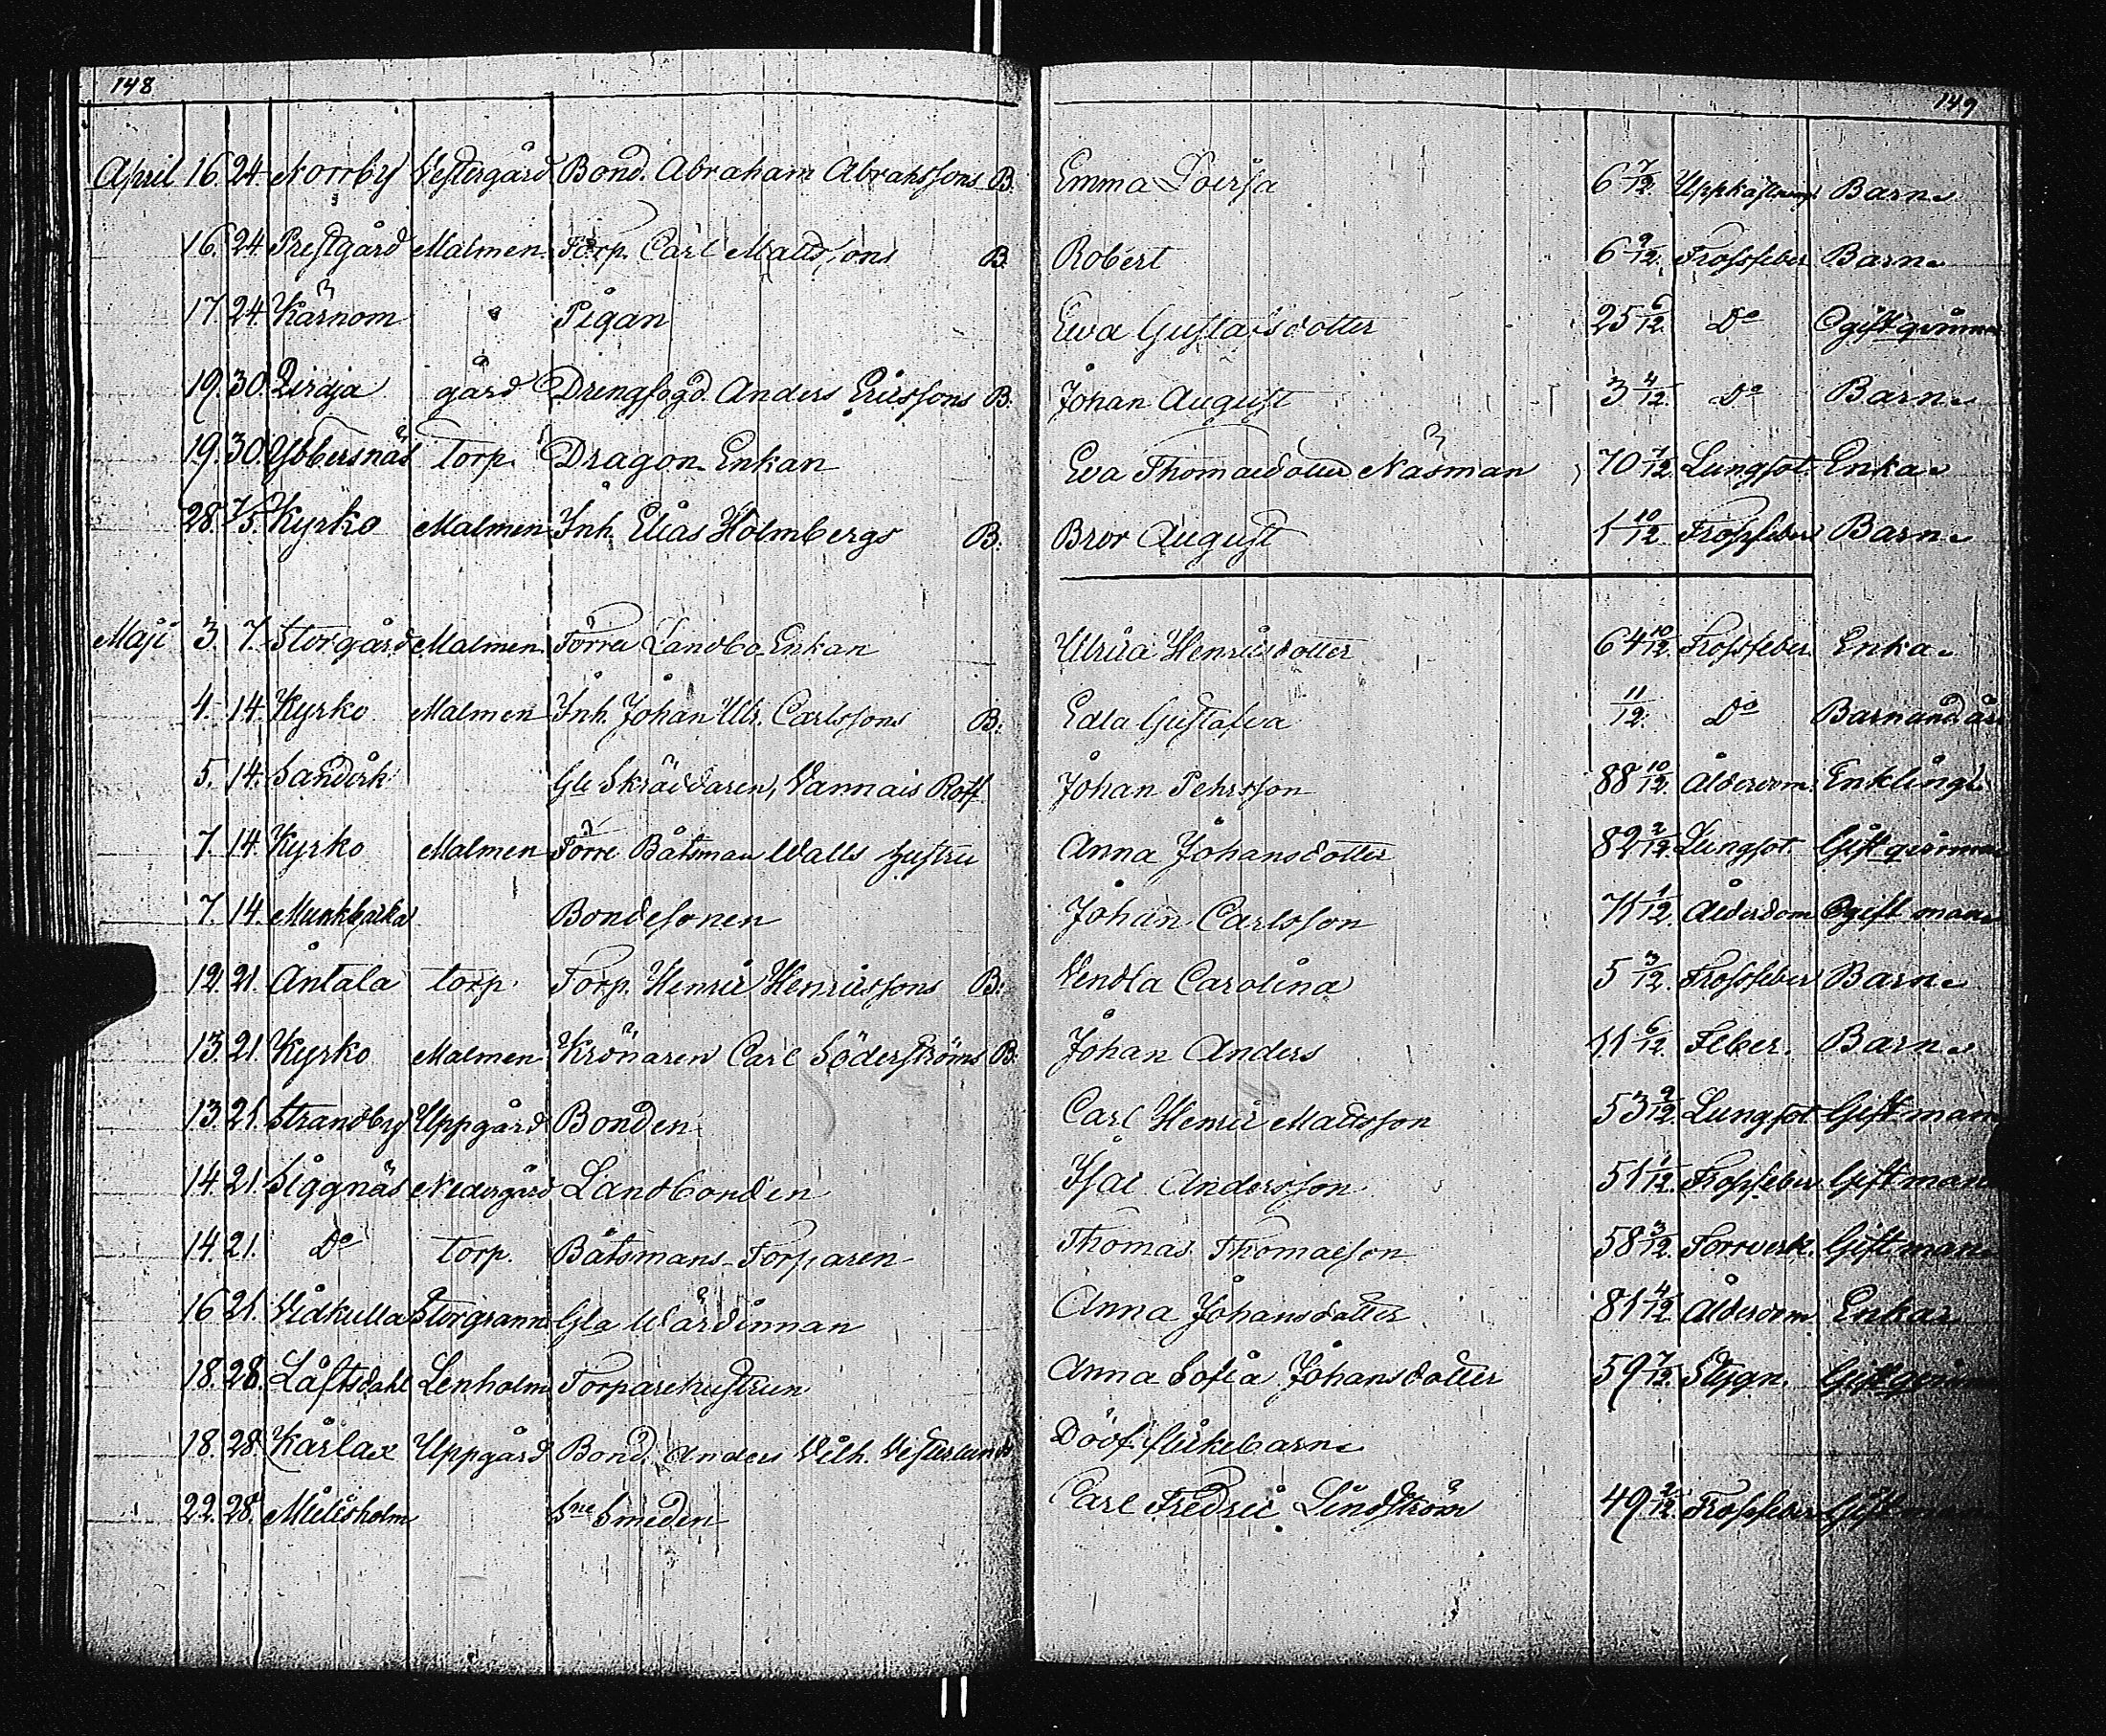 148
149
April 16. 24. Norrby Westergård Bond. Abraham Abrahssons B. Emma Lovisa 6 7/12. Uppkastning Barn.
16. 24. Prestgård Malmen. Torp. Carl Mattssons B. Robert 6 9/12. Frossfeber Barn.
17 24. Kärnom " Pigan Eva Gustafsdotter 25 6/12. Do Ogift qvinna
19. 30. Qvidja gård Drengfogd. Anders Ericssons B. Johan August 3 4/12. Do Barn.
19. 30. Ybbersnäs torp. Dragon Enkan Eva Thomaedotter Näsman 70 7/12. Lungsot. Enka.
28. 7/5. Kyrko Malmen Inh. Elias Holmbergs B. Bror August 1 10/12. Frossfeber Barn.
Maji 3. 7. Storgård Malmen. Förra Landbo Enkan Ulrica Henricsdotter 64 10/12. Frossfeber. Enka.
4. 14. Kyrko Malmen Inh. Johan Ulr. Carlssons B. Edla Gustafva 11/12. Do Barn und. år
5. 14. Sandvik Gle Skräddaren, Vannais Rotf Johan Pehrsson 88 10/12. Ålderdom. Enkling.
7. 14. Kyrko Malmen Förre Båtsman Walls hustru Anna Johansdotter 82 2/12. Lungsot Gift qvinna
7. 14. Munkbacka Bondesonen Johan Carlsson 71 1/12. Ålderdom Ogift man
12. 21. Antala torp. Torp. Henric Henricssons B. Vendla Carolina 5 3/12. Frossfeber Barn.
13. 21. Kyrko Malmen Krönaren Carl Söderströms B. Johan Anders 11 6/12. Feber. Barn.
13. 21. Strandby Uppgård Bonden Carl Henric Mattsson 53 9/12. Lungsot Gift man
14. 21. Siggnäs Nedergård Landbonden Isac Andersson 51 1/12. Frossfeber Gift man
14. 21. Do torp. Båtsmans-Torparen Thomas Thomaeson 58 3/12. Torrverk. Gift man
16 21. Vidkulla Storgrann Gla Wärdinnan Anna Johansdotter 81 4/12. Ålderdom Enka
18. 28. Löftsdahl Lenholm Torparehustrun Anna Sofia Johansdotter 59 7/12. Stygn. Gift qvinna
18. 28. Kärlax Uppgård Bond. Anders Vilh. Vesterlunds Dödf. flickebarn.
22. 28. Mielisholm Sne Smeden Carl Fredric Lindström 49 2/12. Frossfeber Gift man